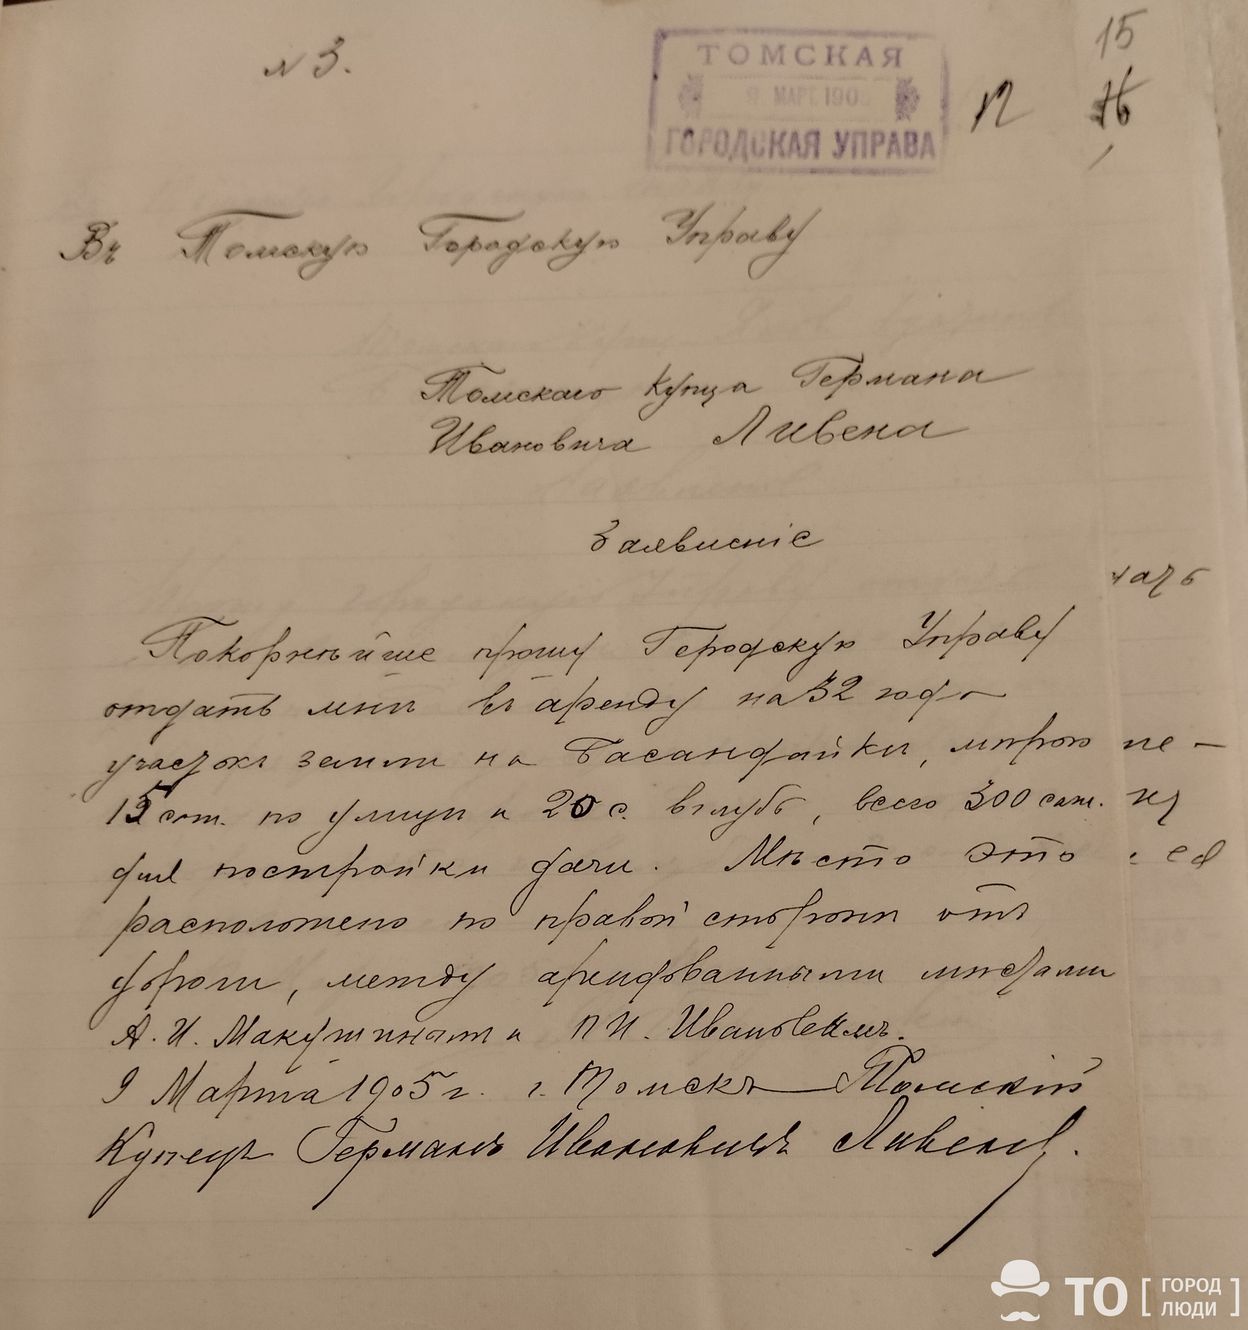 № 3.
15
ТОМСКАЯ
9. МАРТ. 1905
ГОРОДСКАЯ УПРАВА
Въ Томскую Городскую Управу
Томскаго Купца Германа
Ивановича Ливена
Заявленіе
Покорнѣйше прошу Городскую Управу
отдать мнѣ въ аренду на 32 года
участокъ земли на Басандайкѣ, мѣрою
15 саж. по улицѣ и 20 с. вглубь, всего 300 саж.
для постройки дачи. Мѣсто это
расположено по правой сторонѣ отъ
дороги, между арендованными мѣстами
А. И. Макушинымъ и П. И. Ивановымъ.
9 Марта 1905 г. г. Томскъ Томскій
Купецъ Германъ Ивановичъ Ливенъ.
ТО [ ГОРОД
ЛЮДИ ]